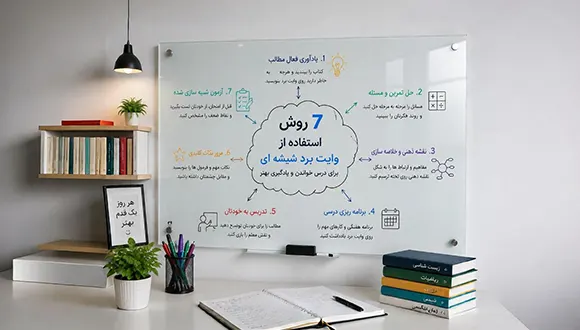 1. یادآوری فعال مطالب
کتاب را ببندید و هرچه به
خاطر دارید روی وایت برد بنویسید.
2. حل تمرین و مسئله
مسائل را مرحله به مرحله حل کنید
و روند فکرتان را ببینید.
3. نقشه ذهنی و خلاصه سازی
مفاهیم و ارتباط ها را به شکل
نقشه ذهنی روی تخته ترسیم کنید.
4. برنامه ریزی درسی
برنامه هفتگی و کارهای مهم را
روی وایت برد یادداشت کنید.
5. تدریس به خودتان
مطالب را برای خودتان توضیح دهید
و نقش معلم را بازی کنید.
6. مرور نکات کلیدی
نکات مهم و فرمول ها را بنویسید
و مقابل چشمتان داشته باشید.
7. آزمون شبیه سازی شده
قبل از امتحان از خودتان تست بگیرید
و نقاط ضعف را مشخص کنید.
7 روش
استفاده از
وایت برد شیشه ای
برای درس خواندن و یادگیری بهتر
هر روز
یک قدم
بهتر
زیست شناسی
ریاضیات
شیمی